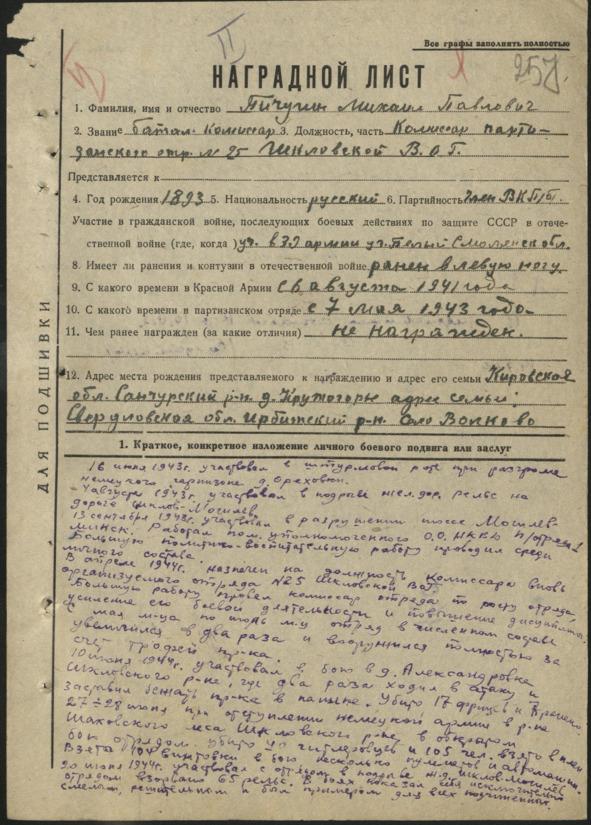 II
257.
Все графы заполнять полностью
НАГРАДНОЙ ЛИСТ
1. Фамилия, имя и отчество Пичугин Михаил Павлович
2. Звание батал. комиссар 3. Должность, часть Комиссар парти-
занского отр. № 25 Шкловской В.О.Г.
Представляется к
4. Год рождения 1893 5. Национальность русский 6. Партийность член ВКП/б
Участие в гражданской войне, последующих боевых действиях по защите СССР в отече-
ственной войне (где, когда) уч. в 39 армии уч. Белый Смоленск обл.
8. Имеет ли ранения и контузии в отечественной войне ранен в левую ногу
9. С какого времени в Красной Армии с 6 августа 1941 года
10. С какого времени в партизанском отряде с 7 мая 1943 года
11. Чем ранее награжден (за какие отличия) не награжден.
12. Адрес места рождения представляемого к награждению и адрес его семьи Кировская
обл. Санчурский р-н д. Крутогорье адрес семьи:
Свердловская обл. Ирбитский р-н. село Волково
ДЛЯ ПОДШИВКИ
1. Краткое, конкретное изложение личного боевого подвига или заслуг
16 июня 1943г. участвовал в штурмовой роте при разгроме
немецкого гарнизона д. Ореховки.
4 августа 1943г. участвовал в подрыве жел.дор. рельс на
дороге Шклов-Могилев.
13 сентября 1943г. участвовал в разрушении шоссе Могилев-
Минск. Работал пом. уполномоченного О.О. НКВД п/отряда
Большую политико-воспитательную работу проводил среди
личного состава.
В апреле 1944г. назначен на должность комиссара вновь
организуемого отряда №25 Шкловской ВОГ.
Большую работу провел комиссар отряда по росту отряда,
усиление его боевой деятельности и повышение дисциплины.
С мая м-ца по июль м-ц отряд в численном составе
увеличился в два раза и вооружился полностью за
счет трофей пр-ка.
10 июня 1944г. участвовал в бою в д. Александровка
Шкловского р-на, где два раза ходил в атаку и
заставил бежать пр-ка в панике. Убито 17 фрицев и
27-28 июня при отступлении немецкой армии в р-не
леса Шкловского р-на, в
бою отрядом убито гитлеровцев и 105 чел. взято в плен
Взято 104 винтовки в бою несколько пулеметов и автомашин.
20 июня 1944г. участвовал с отрядом в подрыве ж.д. Шклов-Могилев
отрядом взорвали 65 рельс. В боях показал себя исключительно
смелым, решительным и был примером для всех подчиненных.